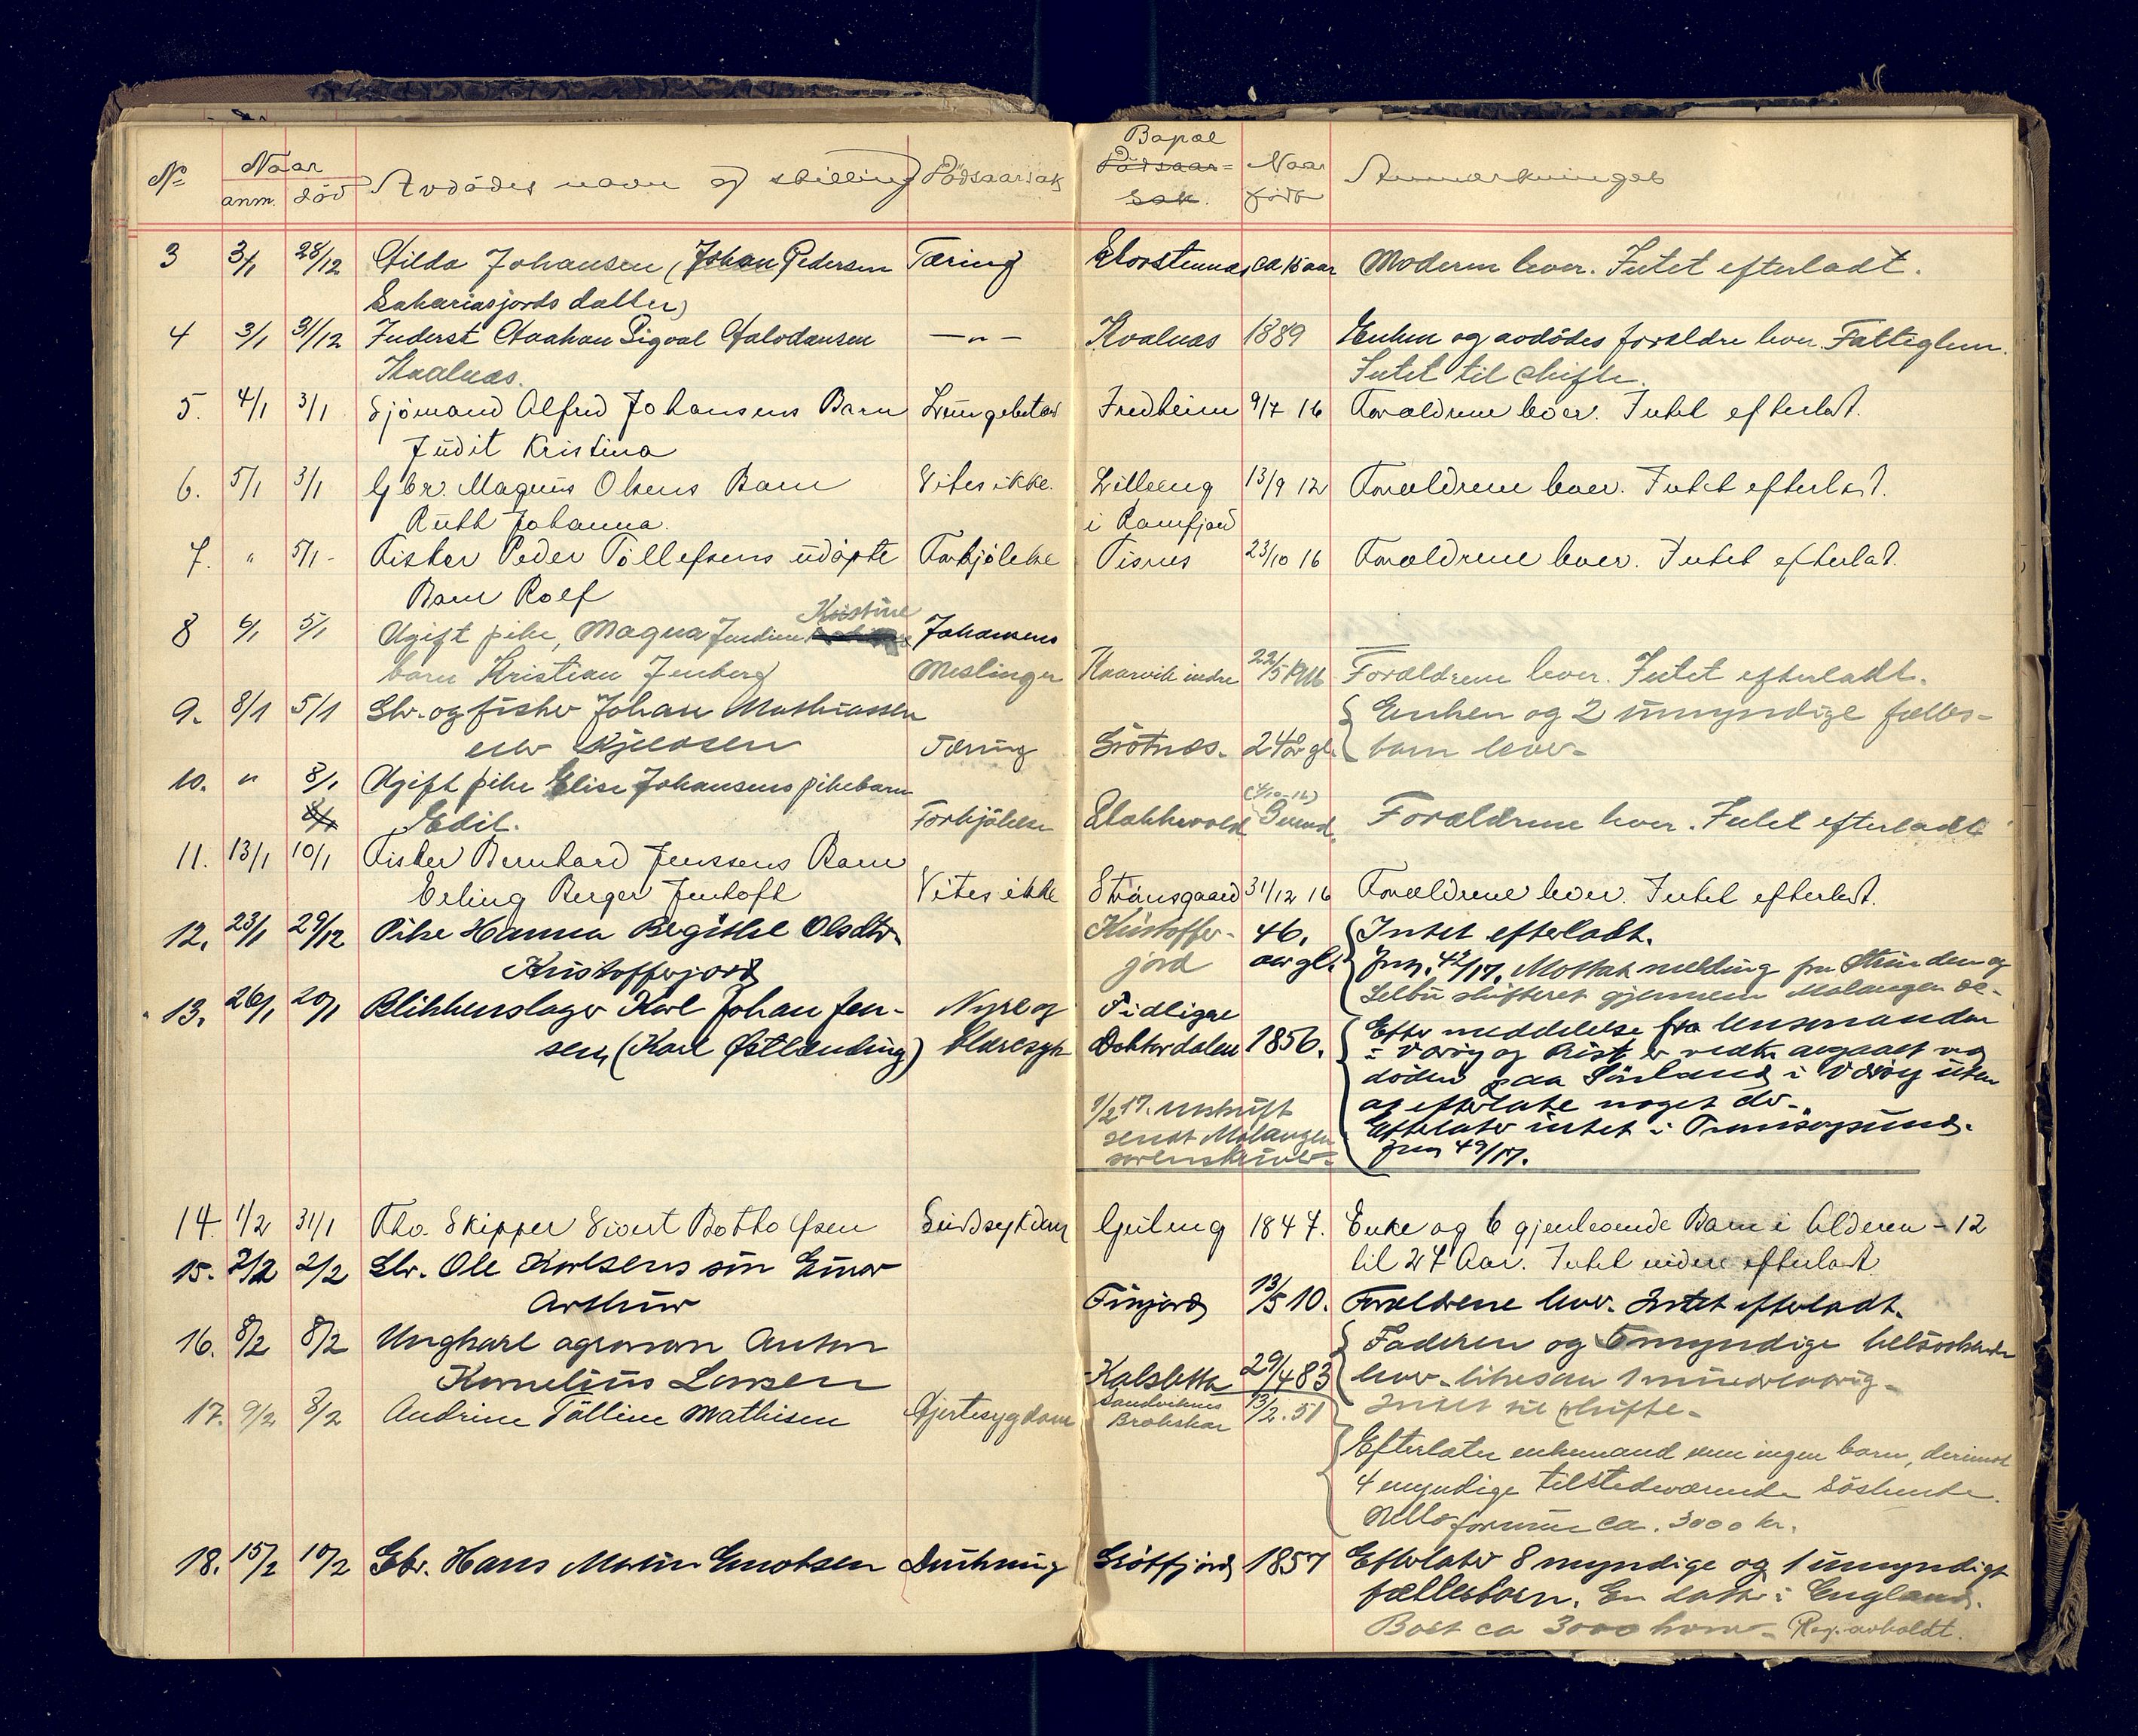 No Naar Avdødes navn og stilling Dödsaarsak Bopæl Naar Anmerkninger
anm. död Dödsaarsak. født
3 3/1 28/12 Hilda Johansen (Johan Pedersen Tæring ca 15 aar Moderen lever. Intet efterladt.
Sakariasjords datter)
4 3/1 31/12 Inderst Haakan Sigval Halvdansen —"— Kvalnæs 1889 Enken og avdödes forældre lever. Fattiglem.
Kvalnæs. Intet til skifte.
5. 4/1 3/1 Sjömand Alfred Johansens Barn Lungebetæn Fredheim 9/7 16 Forældrene lever. Intet efterlat.
Judit Kristina
6. 5/1 3/1 Gbr. Magnus Olsens Barn Vites ikke. 13/9 12 Forældrene lever. Intet efterlat.
Ruth Johanna. i Ramfjord
7. " 5/1 - Fisker Peder Tollefsens udöpte Forkjölelse Tisnes 23/10 16 Forældrene lever. Intet efterlat.
Barn Rolf
Kristine
8 6/1 5/1 Ugift pike, Magna Jendine Johansens
barn Kristian Jenberg Meslinger Kaarvik indre 22/5 1916 Forældrene lever. Intet efterladt.
9. 8/1 5/1 Gbr. og fisker Johan Mathiassen Enken og 2 umyndige fælles-
eller Kjeldsen Tæring Grötnæs. 24 år gl. barn lever.
10. " 8/1 Ugift pike Elise Johansens pikebarn (4/10-16)
8/1 Edit. Forkjölelse Stakkevold Forældrene lever. Intet efterladt
11. 13/1 10/1 Fisker Bernhard Jenssens Barn
Erling Berger Jentoft Vites ikke Straumsgaard 31/12 16 Forældrene lever. Intet efterlat.
12. 23/1 29/12 Pike Hanna Begitte Olsdtr. Kristoffer- 46. Intet efterladt.
Kristofferjord jord aar gl. Jnr. 42/17. Mottat melding fra Strinden og
13. 26/1 20/1 Blikkenslager Karl Johan Jen- Nyre og Tidligere Selbu skifteret gjennem Malangen
sen (Karl Østlænding) blæresyk Doktordalen 1856. Efter meddelelse fra lensmanden
i Værøy og Røst er vedk. avgaaet ved
döden paa Sørland i Værøy uten
at efterlate noget der.
1/2 17. utskrift Efterlater intet i Tromsøysund.
sendt Malangen Jnr 49/17.
sorenskriver.
14. 1/2 31/1 Fhv. Skipper Sivert Botholfsen Sindsykdom 1847. Enke og 6 gjenlevende Barn i Alderen - 12
15. 2/2 2/2 Gbr. Ole Karlsens sön Einar til 27 Aar. Intet videre efterladt
Arthur Finjord 13/5 10. Forældrene lever. Intet efterladt.
16. 8/2 8/2 Ungkarl agronom Anton Faderen og 5 myndige helsöskende
Kornelius Larsen Kalsletta 29/4 83 lever. likesaa 1 mindreaarig.
17. 9/2 8/2 Andrine Tølline Mathisen Hjertesygdom Sandviknes 13/2. 51 Intet til skifte.
Brokskar
Efterlater enkemand men ingen barn, derimot
4 myndige tilstedeværende söskende.
Netto formue ca. 3000 kr.
18. 15/2 10/2 Gbr. Hans Martin Enoksen Drukning Grötfjord 1857 Efterlater 8 myndige og 1 umyndigt
fællesbarn. En datter i England.
Boet ca 3000 kroner. Reg. avholdt.